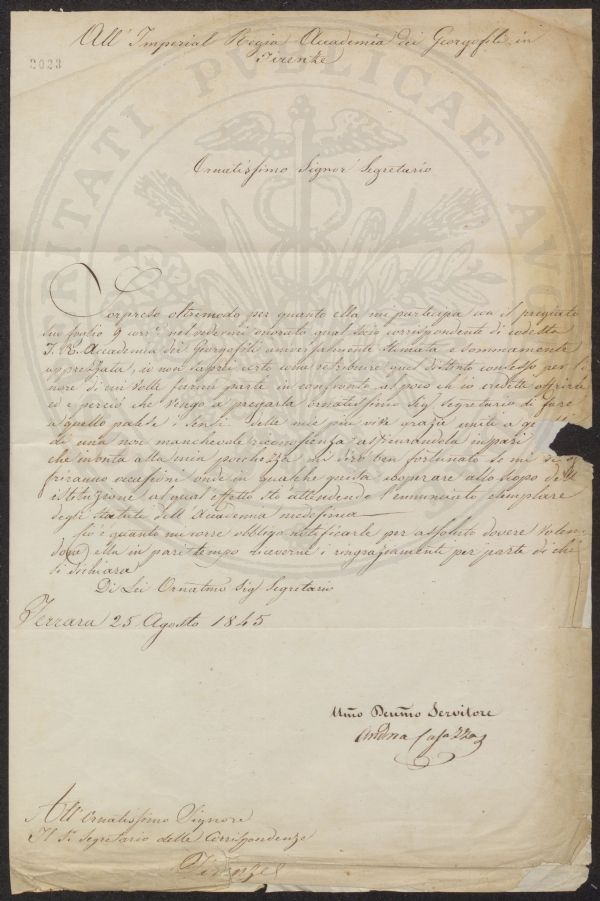 All' Imperial Regia Accademia dei Georgofili in
Firenze
2023
PUBLICAE
Ornatissimo Signor Segretario
Sorpreso oltremodo per quanto ella mi partecipa con il pregiato
suo foglio 9 corr.e nel vedermi onorato qual socio corrispondente di codesta
I. R. Accademia dei Georgofili universalmente stimata e sommamente
apprezzata, io non saprei certo come retribuire quel distinto consesso per l'o
nore di cui volle farmi parte in confronto al poco ch'io credetti offrirle
ed è perciò che vengo a pregarla ornatissimo Sig.r Segretario di fare
a quello palese i sensi delle mie più vive grazie uniti a
di una non manchevole riconoscenza assicurandola in pari
che in onta alla mia pochezza mi dirò ben fortunato se mi
friranno occasioni onde in qualche guisa cooperare allo scopo dell'
istituzione al qual effetto stò attendendo l'enunciato esemplare
degli statuti dell'Accademia medesima
Ciò è quanto mi corre obbligo notificarle per assoluto dovere volen
dosi ella in pari tempo riceverne i ringraziamenti per parte di chi
si dichiara
Di Lei Ornatmo Sig.r Segretario
Ferrara 25 Agosto 1845
Umo Devmo Servitore
Andrea Casazza
All' Ornatissimo Signore
Il S.r Segretario delle Corrispondenze
Firenze